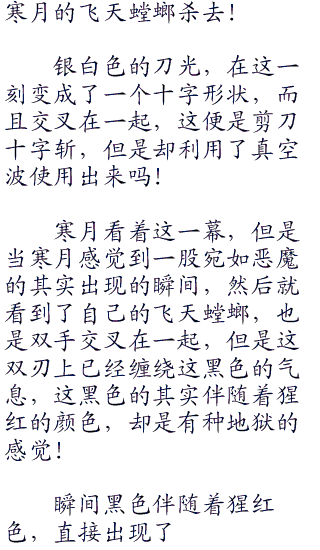 寒月的飞天螳螂杀去！
银白色的刀光，在这一
刻变成了一个十字形状，而
且交叉在一起，这便是剪刀
十字斩，但是却利用了真空
波使用出来吗！
寒月看着这一幕，但是
当寒月感觉到一股宛如恶魔
的其实出现的瞬间，然后就
看到了自己的飞天螳螂，也
是双手交叉在一起，但是这
双刃上已经缠绕这黑色的气
息，这黑色的其实伴随着猩
红的颜色，却是有种地狱的
感觉！
瞬间黑色伴随着猩红
色，直接出现了